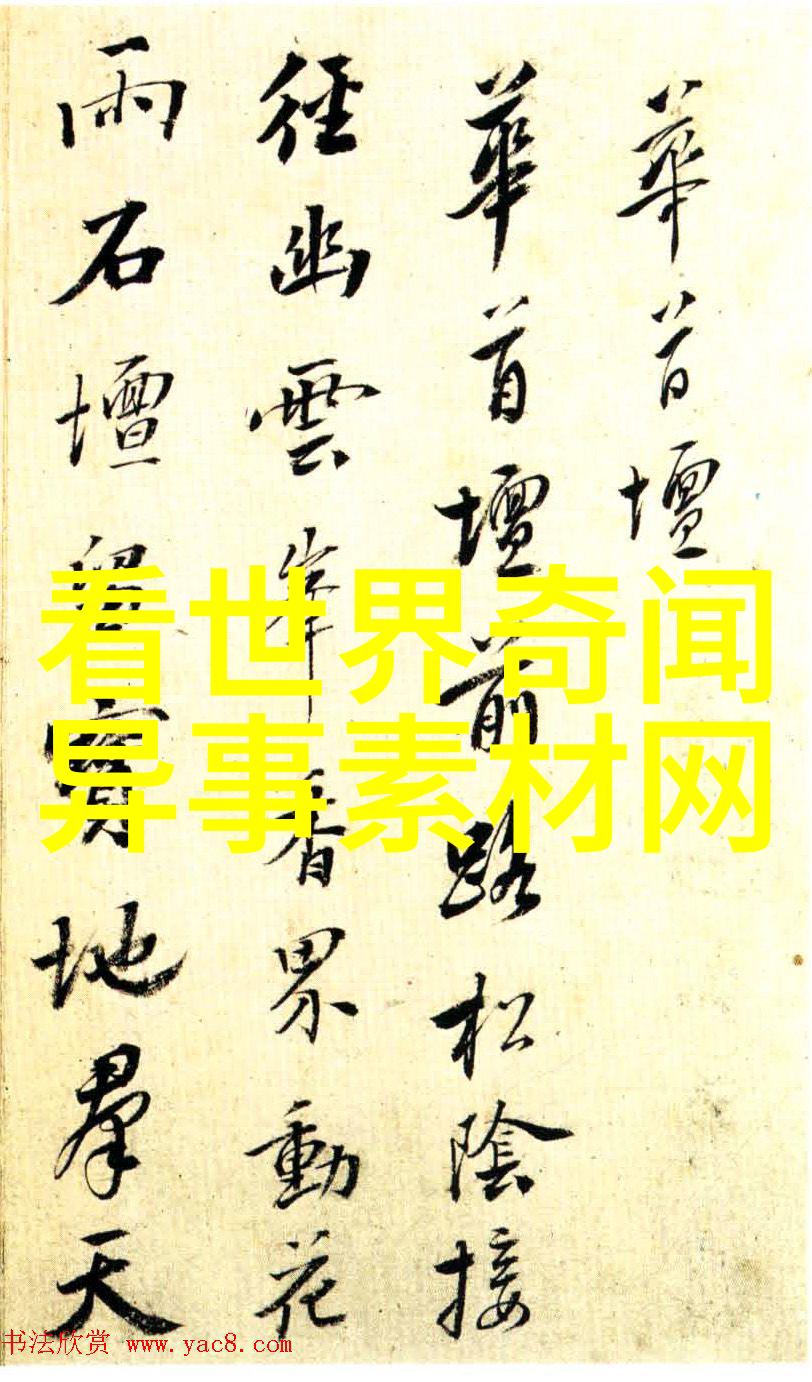 華首壇
華首壇前路松陰接
徑幽雲岸香界動花
雨石壇留寶地羣天
看世界奇闻
异事素材网
书法欣赏 www.yac8.com